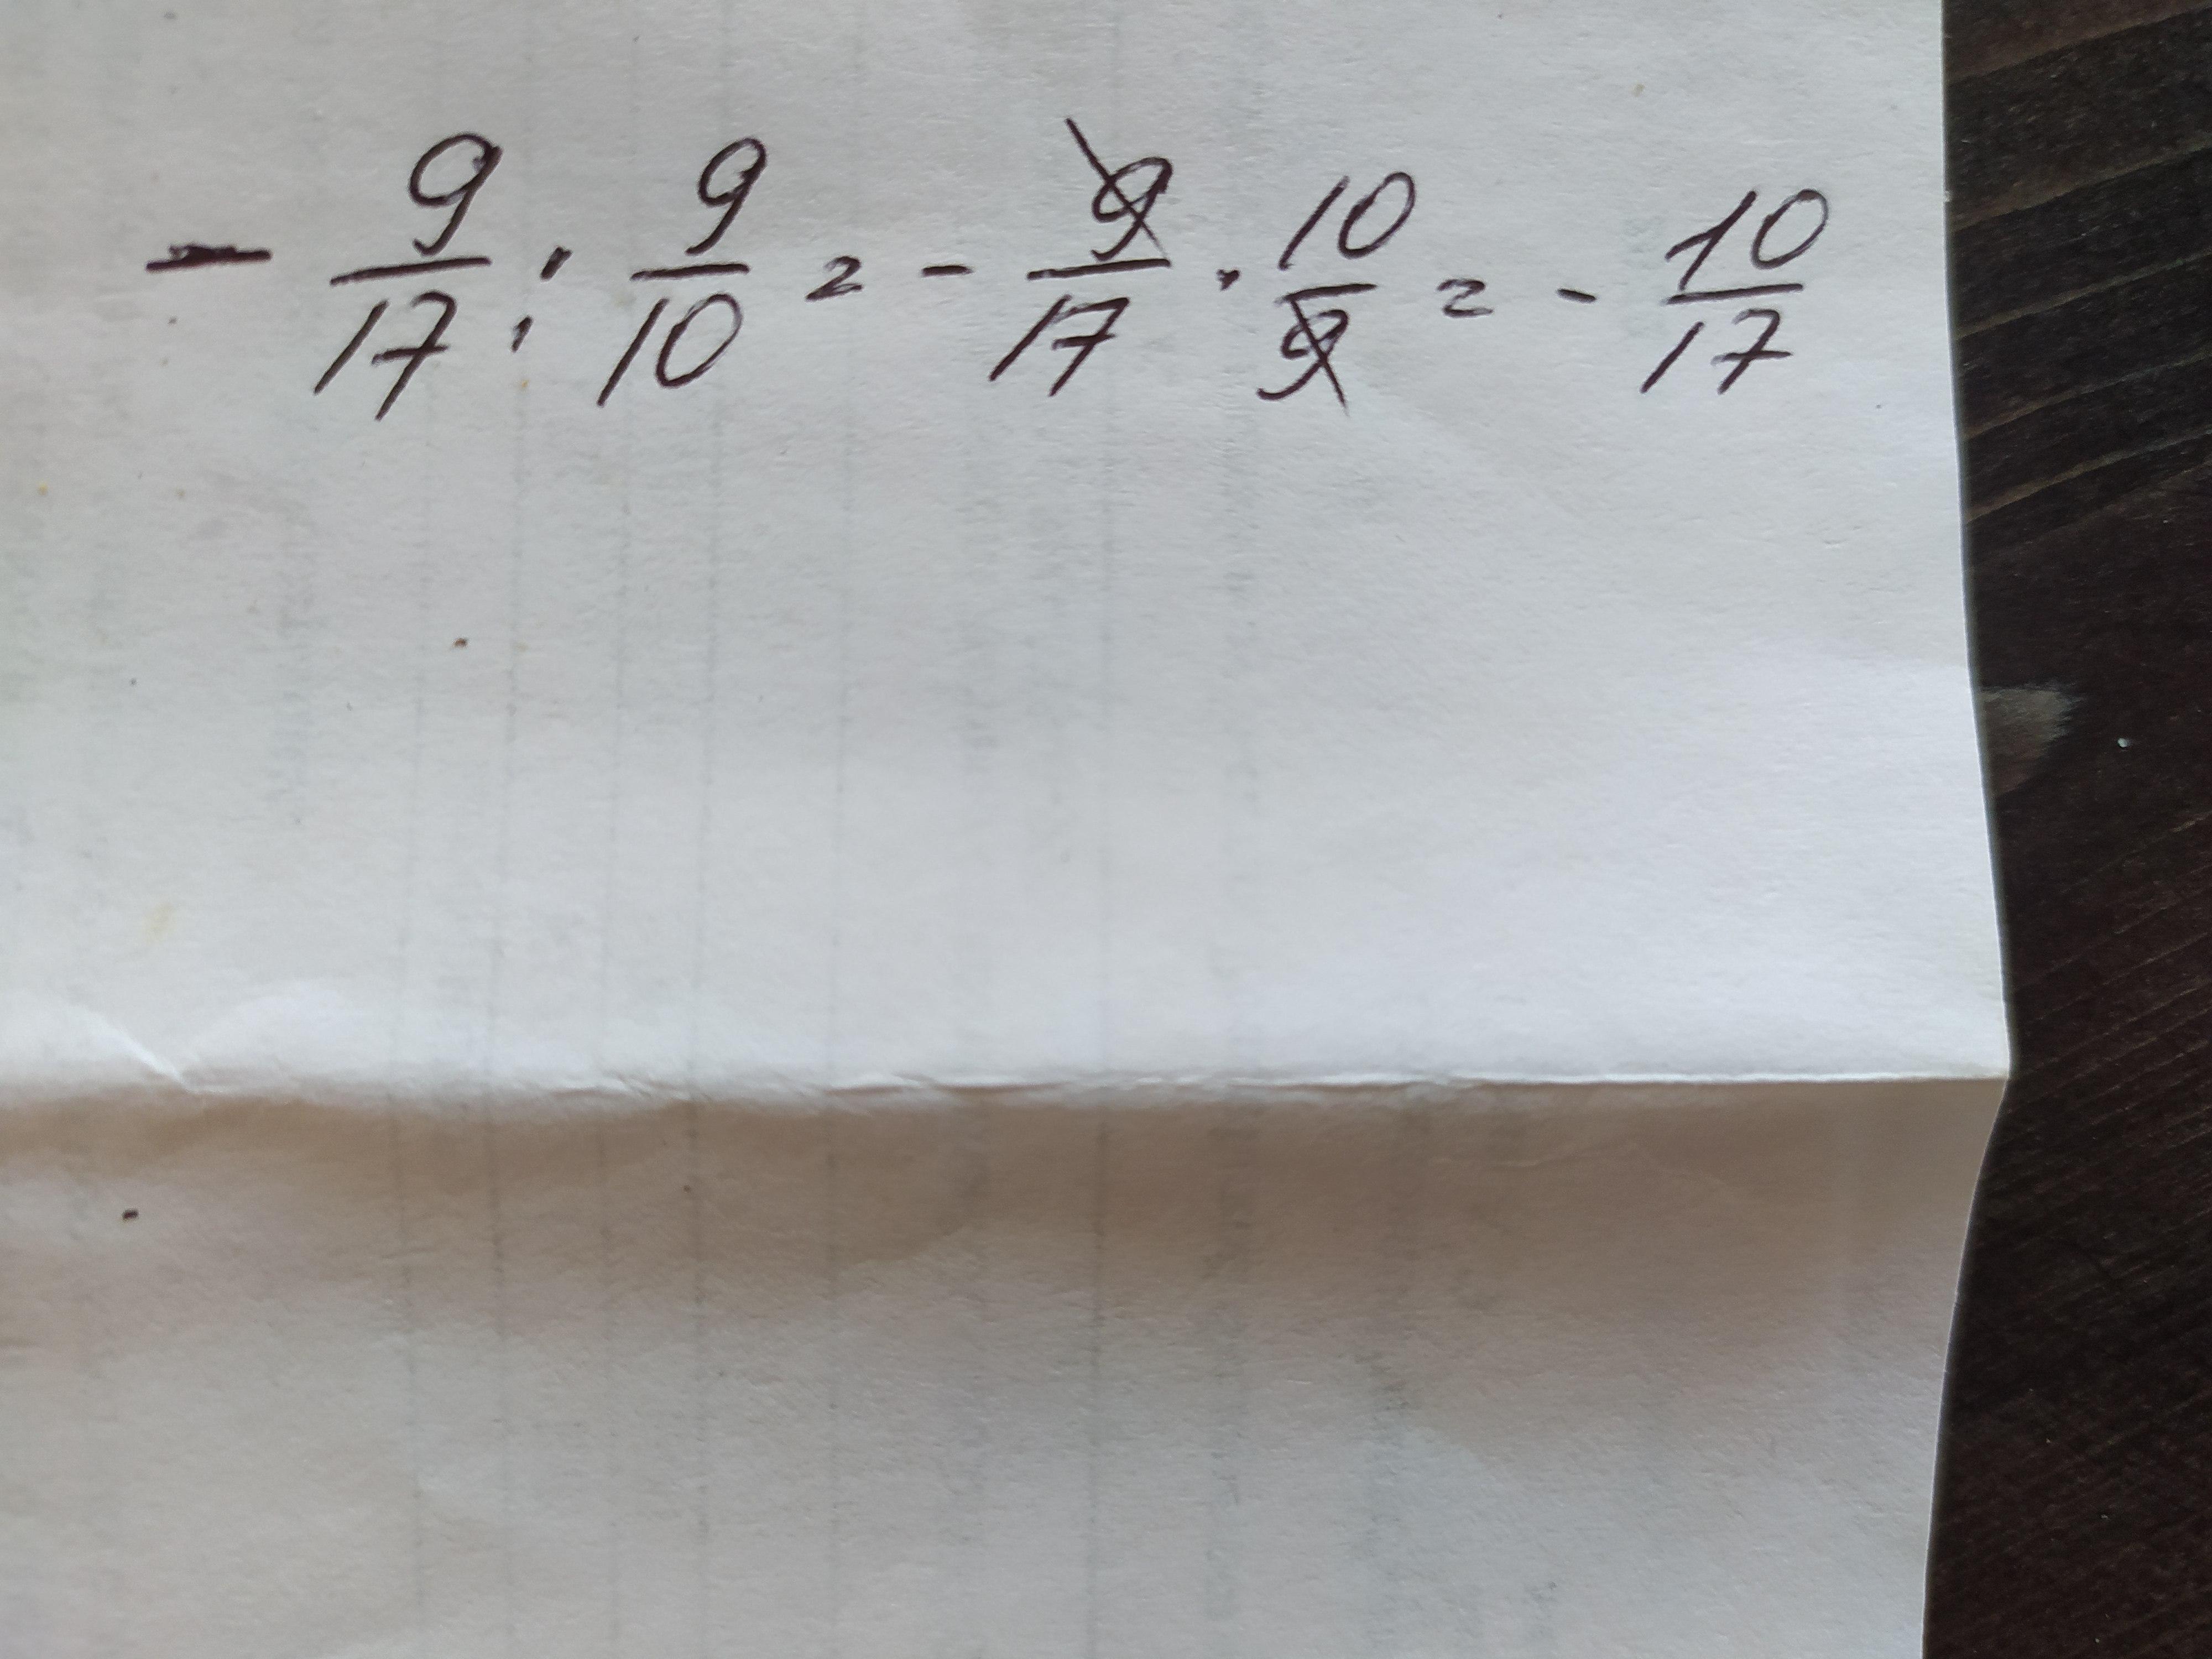 - 9/17 : 9/10 = - 9/17 · 10/9 = - 10/17